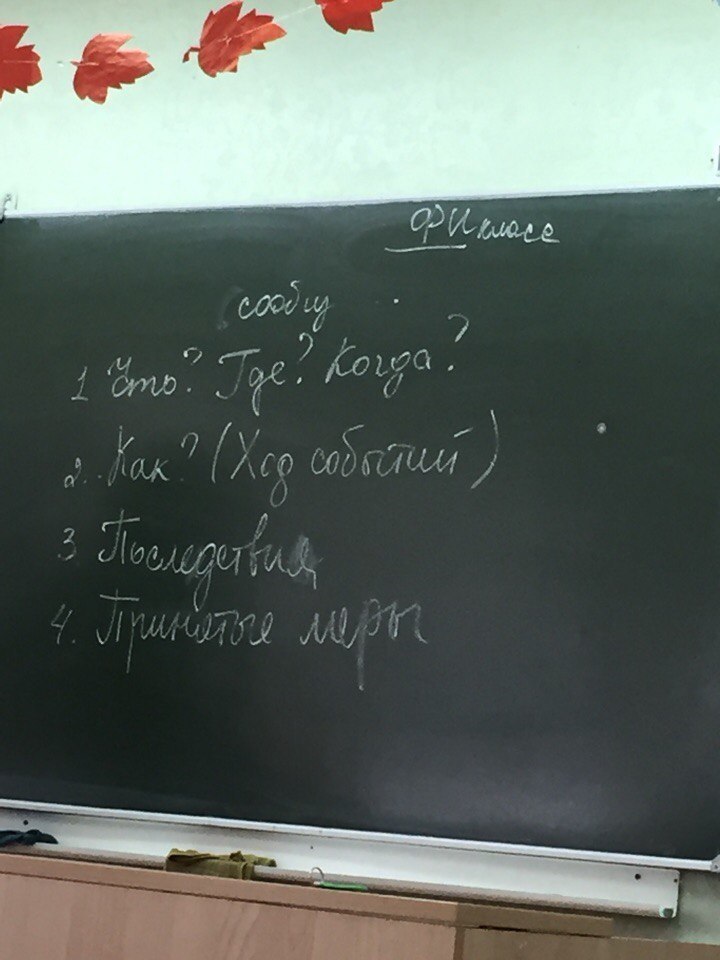 ФИ класс
сообщ
1 Что? Где? Когда?
2. Как? (Ход событий)
3 Последствия
4. Принятые меры